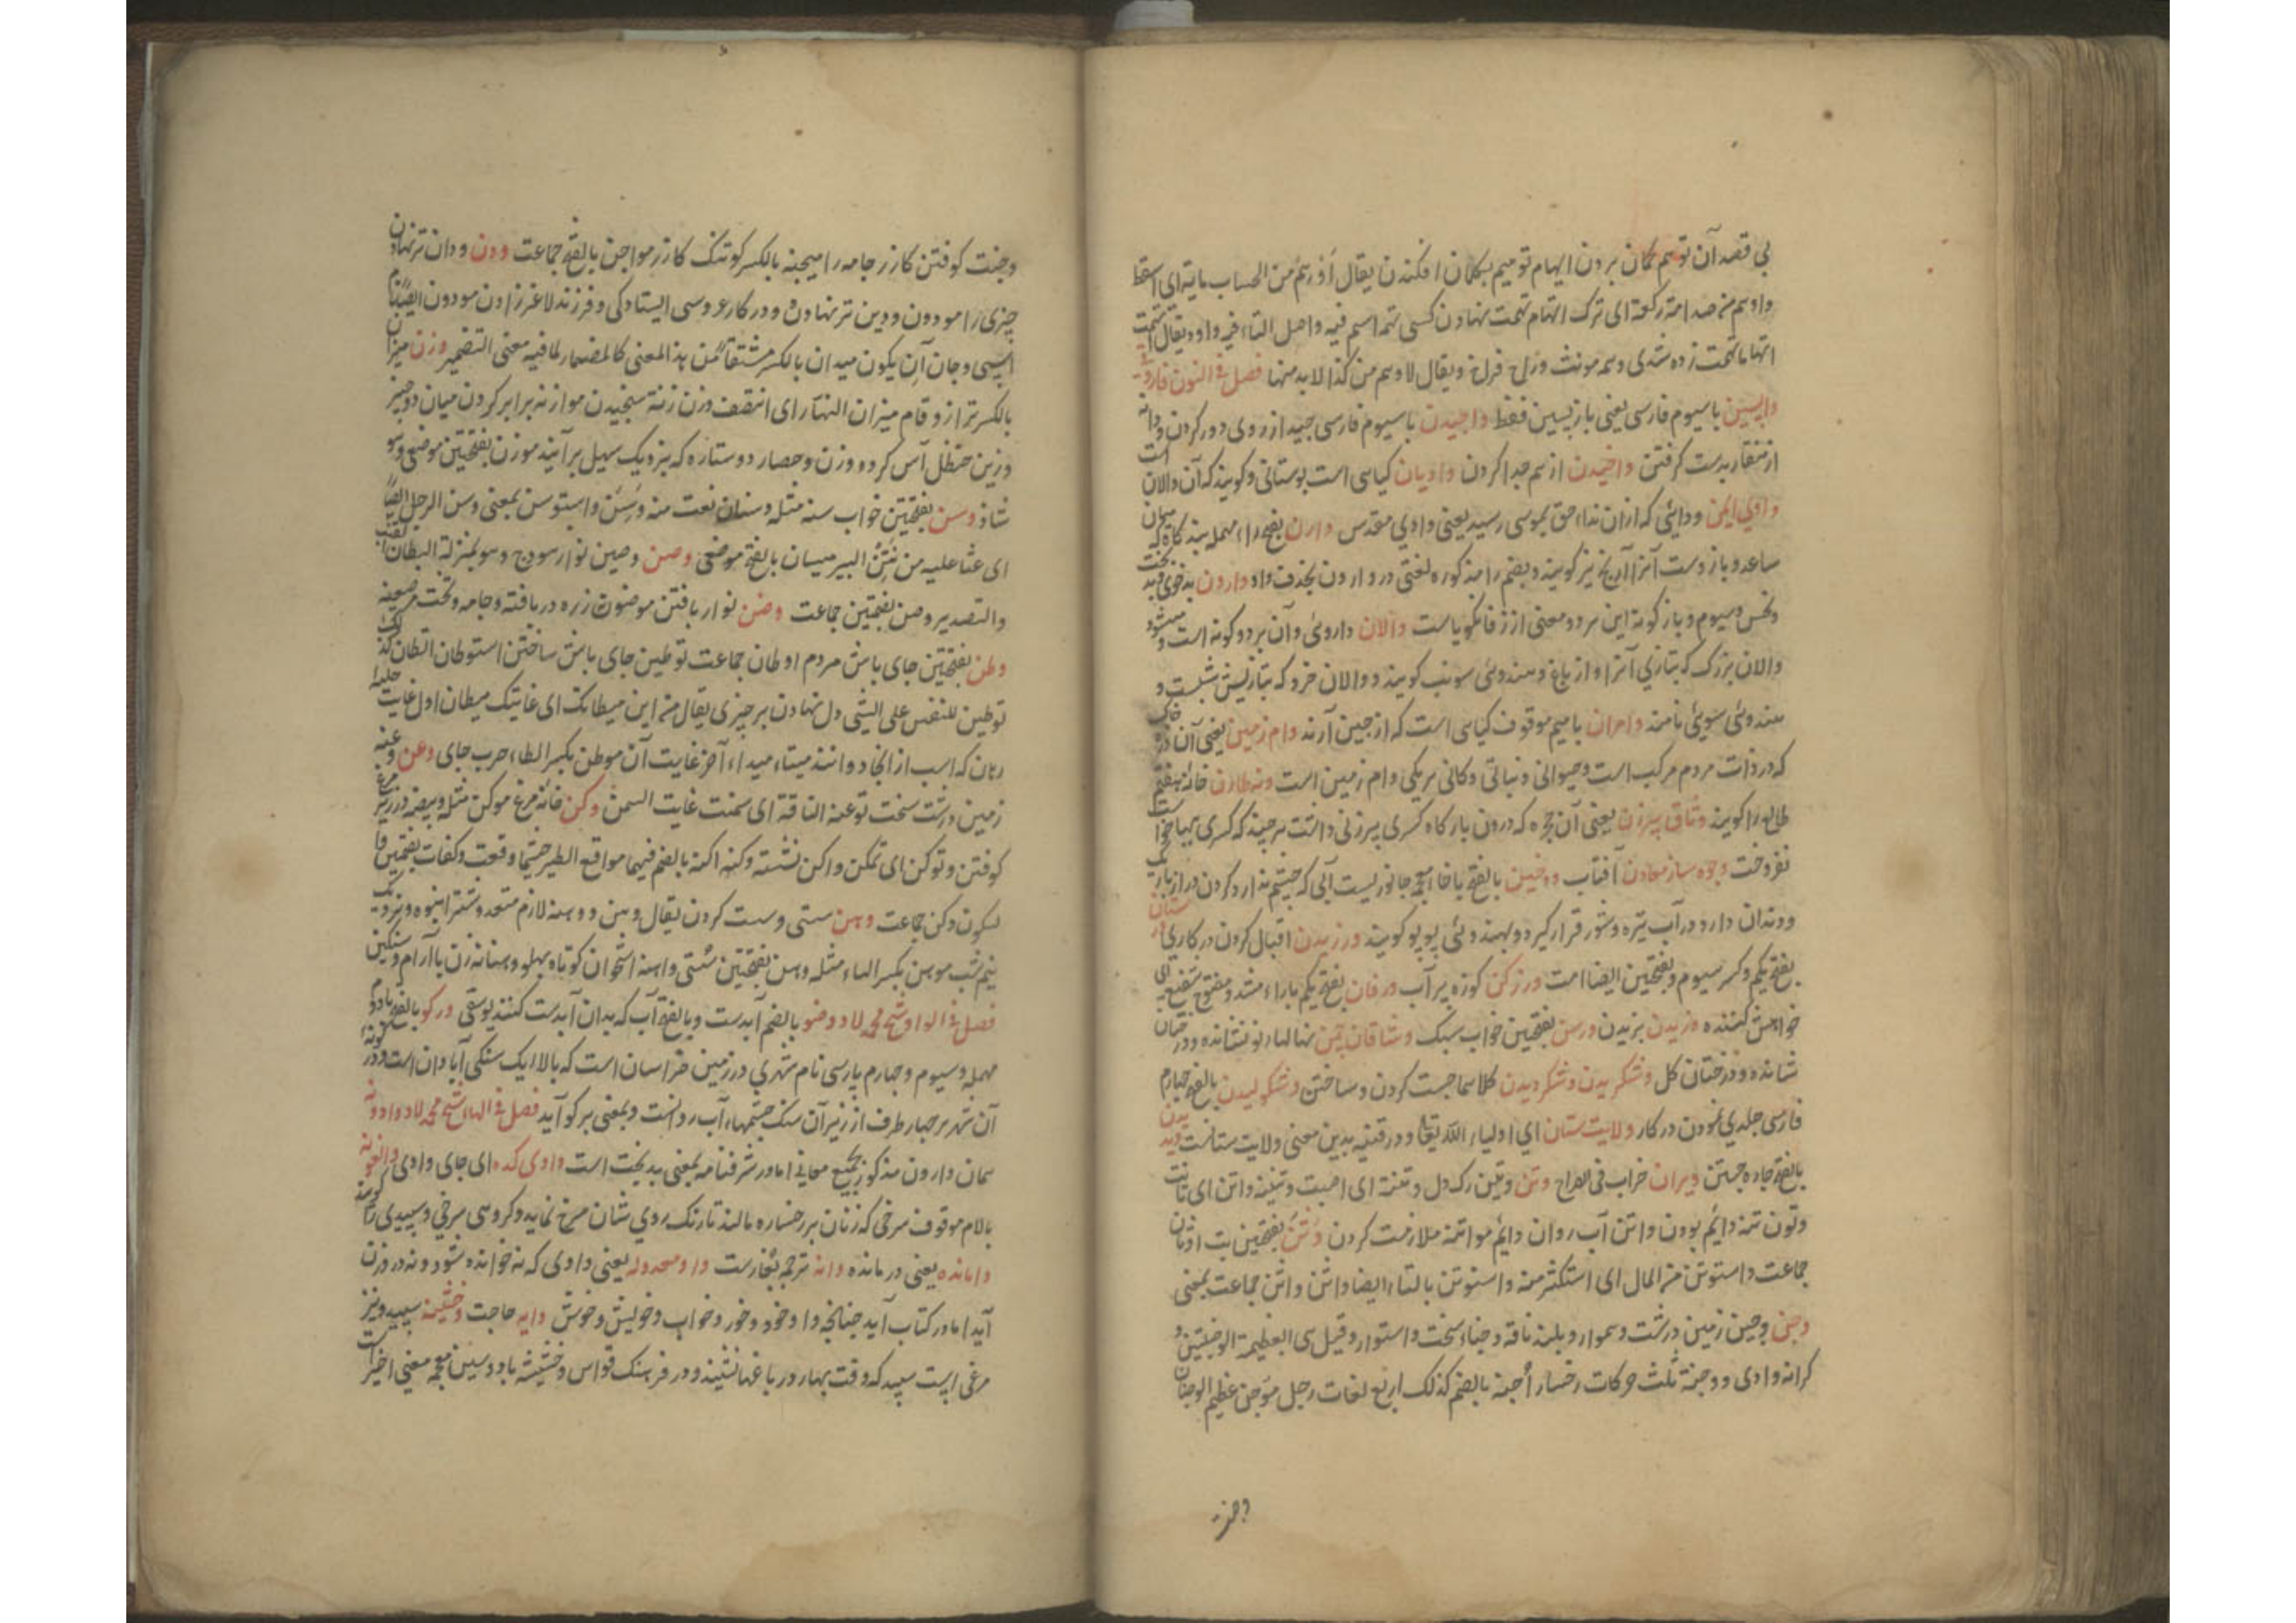 بی قصد آن توهم کمان بردن ایهام توهیم بکمان افکندن یقال من الحساب مایة ای اسقط
واوهم من صلاته رکعة ای ترک اتهام تهمت نهادن کسی تهمة اسم فیه واصل التاء فیه واو ویقال
تهمت زده شدی و مونث ویقال لا وهم من کذا لا بد منها فصل فی النون فارسی
واپسین با سیوم فارسی یعنی بازپسین فقط واچیدن با سیوم فارسی چید از روی دور کردن و دانه
از منقار بدست کرفتن از هم جدا کردن وادیان کیاهی است بوستانی وکویند که آن والان است
وادی ایمن که ازان نداء حق بموسی رسید یعنی وادی مقدس وارن بفتح راء مهمله بندکاه میان
ساعد و بازوست آنرا آرنج نیز کویند و بضم را مذکوره لغتی در وارون بحذف واو وارون بدخوی و بدبخت
ونحس وسیوم و بازکونه این هر دو معنی از زفانکویاست والان داروئی و آن بر دو کونه است
والان بزرک که بتازی آنرا رازیانج و هندوئی سونپ کویند و والان خرد که بتازیش شبت و
هندوئی سوئی نامند وامران با میم موقوف کیاهی است که از چین آرند وام زمین یعنی آن ذره خاک
که در ذات مردم مرکب است و حیوانی و نباتی و کانی هر یکی وام زمین است خانه هفتم
طالع را کویند وثاق پیرزن یعنی آن حجره که درون بارکاه کسری پیرزنی داشت هر چند که کسری ببها خواست
نفروخت وجوه ساز معادن آفتاب بالفتح با خا معجمه جانوریست آبی که چشم ندارد کردن دراز باریک
و دندان دارد در آب تیره و شور قرار کیرد و بهندوئی کویند ورزیدن اقبال کردن در کاری
بفتح یکم و کسر سیوم و بفتحتین ایضا است ورزکن کوزه پر آب ورفان بفتح یکم با راء مشدد مفتوح شفیع ای
خواهش کننده وزیدن بزیدن وسن بفتحتین خواب سبک وشاقان چمن نهالهاء نو نشانده و درختان
شانده و درختان کل وشکریدن وشکردیدن کلاهما چست کردن و ساختن وشکولیدن بالفتح چهارم
فارسی جلدی نمودن در کار ولایت ستان ای اولیاء الله تعالی و در قنیه بدین معنی ولایت ستانست ویدیدن
بالفتح چاره جستن ویران خراب فی العراح وتن وتین رک دل وتنته ای اصبت وتینه واتن ای ثابت
وتون تنه دایم بودن واتن آب روان دایم مواتنه ملازمت کردن وثن بفتحتین بت اوثان
جماعت واستوثن من المال ای استکثر منه واستوتن بالتاء ایضا واثن واثن جماعت بمعنی
وجن وجین زمین درشت و هموار و بلند ناقه وجناء سخت و استوار وقیل هی العظیمة الوجنتین و
کرانه وادی و وجنة ثلث حرکات رخسار أجنه بالضم کذلک اربع لغات رجل موجن عظیم الوجنات
وجنت
وجنت کوفتن کازر جامه را میجنه بالکسر کوتنک کازر مواجن بالفتح جماعت ودن ودان تر نهادن
چیزی را مودون ودین تر نهاده و در کار عروسی ایستادکی و فرزند لاغر زادن مودون ایضا نام
اسپی وجان آن یکون میدان بالکسر مشتقا من هذا المعنی کالمضمار لما فیه معنی التضمیر وزن میزان
بالکسر ترازو قام میزان النهار ای انتصف وزن زنة سنجیدن موازنه برابر کردن میان دو چیز
وزین حنظل آس کرده وزن و حضار دو ستاره که نزدیک سهیل بر آیند موزن بفتحتین موضعی وهو
شاذ وسن بفتحتین خواب سنه مثله وسنان نعت منه وَسِنٌ واستوسن بمعنی وسن الرجل ایضا
ای غشا علیه من نتن البئر میسان بالفتح موضعی وضن وضین نوار هودج وهو بمنزلة البطان للقتب
والتصدیر وضن بضمتین جماعت وضن نوار بافتن موضون زره در بافته و جامه و تخت مرصعه
وطن بفتحتین جای باش مردم اوطان جماعت توطین جای باش ساختن استوطان اتطان کذلک
توطین للنفس علی الشیء دل نهادن بر چیزی یقال من این میطانک ای غایتک میطان اول غایت
رهان که اسب از انجا دوانند میتاء میداء آخر غایت آن موطن بکسر الطاء حرب جای وعن وعنه
زمین درشت سخت توعنه الناقة ای سمنت غایت السمن وکن خانه مرغ موکن مثله و بیضه در زیر
کوفتن وتوکن ای تمکن واکن نشسته وکنه اکنه بالضم فیهما مواقع الطیر حیثما وقعت وکنات بضمتین
لسکون وکن جماعت وهن سستی و سست کردن یقال وهن و وهنه لازم متعد و شتر انبوه و نزدیک
نیم شب موهن بکسر الهاء مثله وهن بفتحتین سستی واهنه استخوان کوتاه پهلو وهنانه زن با آرام و سنکین
فصل فی الواو شیخ محمد لاد وضو بالضم آبدست و بالفتح آب که بدان آبدست کنند ورکو بالفتح با دوم
مهمله و سیوم و چهارم پارسی نام شهری در زمین خراسان است که بالا یک سنکی آبادان است و در
آن شهر هر چهار طرف از زیر آن سنک چشمهاء آب روانست و بمعنی برکو آید فصل فی الهاء شیخ محمد لاد وادونه
همان وارون مذکور بجمیع معانی اما در شرفنامه بمعنی بدبخت است وادی کده ای جای وادی والغونه
بالام موقوف سرخی که زنان بر رخساره مالند تا رنک روی شان سرخ نماید و کروهی سرخی و سپیدی را کویند
وامانده یعنی در مانده وانه ترجمه واو معدوله یعنی واوی که نه خوانده شود و نه در وزن
آید اما در کتابت آید چنانچه واو خود و خور و خواب و خویش و خوش وایه حاجت وخشینه سپید و نیز
مرغی است سپید که وقت بهار در باغها نشیند و در فرهنک قواس وخشیشه با دو سین معجمه معنی اخیر است